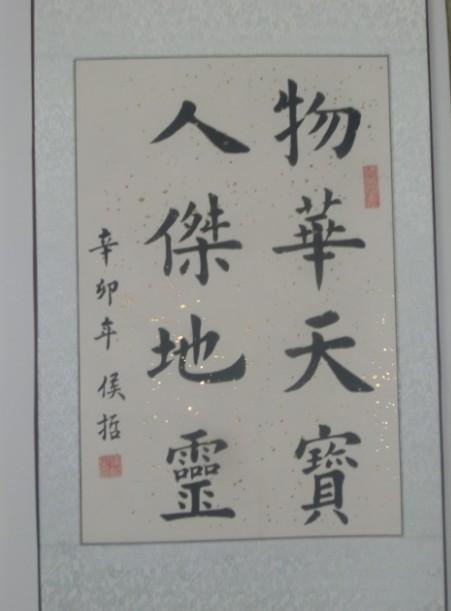 物華天寶
人傑地靈
辛卯年 侯哲